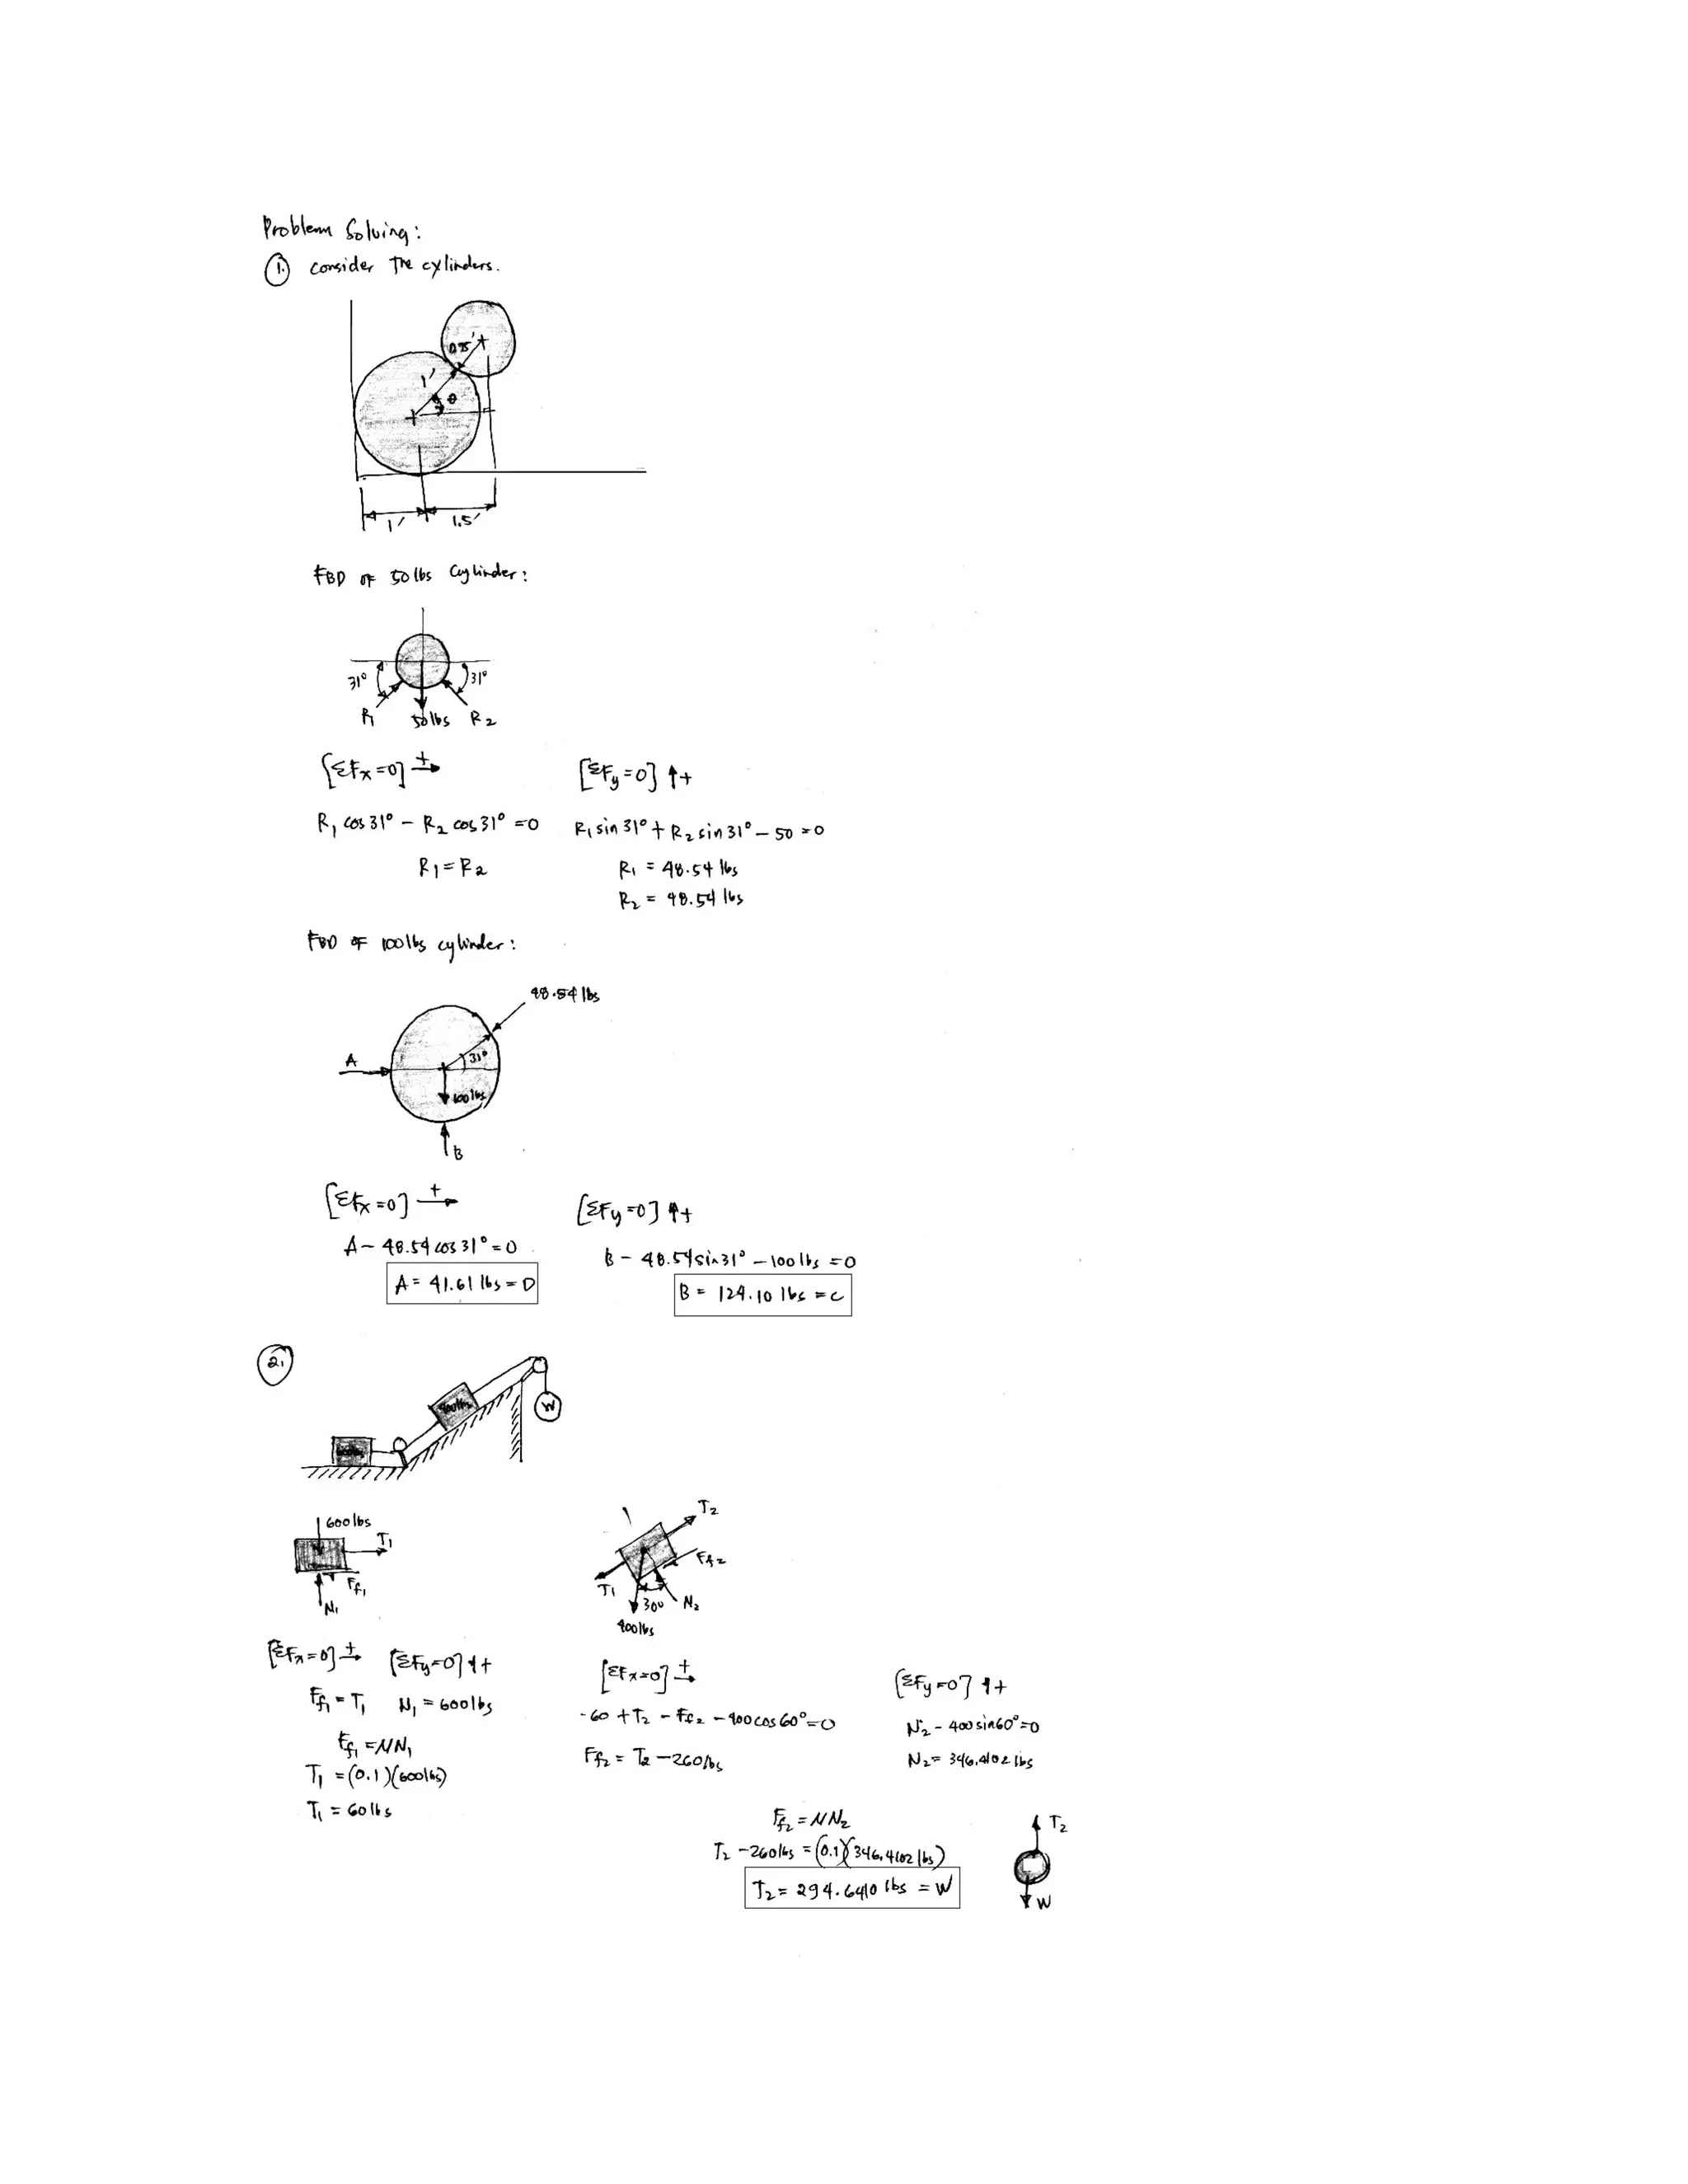 Problem Solving:
1. Consider The cylinders.
1'
θ
1'
1.5'
FBD OF 50 lbs Cylinder:
31° 31°
R1 50 lbs R2
[ΣFx=0] +
[ΣFy=0] ↑+
R1 cos 31° - R2 cos 31° = 0
R1 sin 31° + R2 sin 31° - 50 = 0
R1 = R2
R1 = 48.54 lbs
R2 = 48.54 lbs
FBD OF 100 lbs cylinder:
48.54 lbs
A
31°
100 lbs
B
[ΣFx=0] +
[ΣFy=0] ↑+
A - 48.54 cos 31° = 0
B - 48.54 sin 31° - 100 lbs = 0
A = 41.61 lbs = D
B = 124.10 lbs = C
2.
W
600 lbs
T1
Ff1
N1
T2
Ff2
T1
30° N2
400 lbs
[ΣFx=0] +
[ΣFy=0] ↑+
Ff1 = T1
N1 = 600 lbs
Ff1 = μN1
T1 = (0.1)(600 lbs)
T1 = 60 lbs
[ΣFx=0] +
[ΣFy=0] ↑+
-60 + T2 - Ff2 - 400 cos 60° = 0
N2 - 400 sin 60° = 0
Ff2 = T2 - 260 lbs
N2 = 346.4102 lbs
Ff2 = μN2
T2 - 260 lbs = (0.1)(346.4102 lbs)
T2 = 294.6410 lbs = W
T2
W